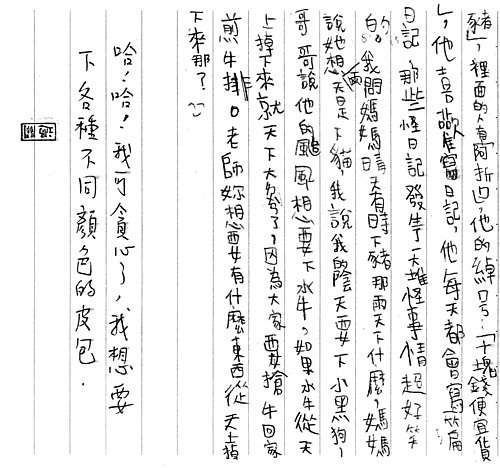 豬」,裡面的人有阿折巴,他的綽号:「十塊錢便宜貨
」,他喜歡寫日記,他每天都會寫一篇
日記,那些怪日記發生了一大堆怪事情超好笑
的。我問媽媽晴天有時下豬那雨天下什麼,媽媽
說她想雨天是下貓,我說我的陰天要下小黑狗,
哥哥說他的颱風想要下水牛,如果水牛從天
上掉下來就天下大亂了,因為大家要搶牛回家
煎牛排。老師妳想要有什麼東西從天上
下來那?
哈!哈!我可貪心了,我想要
下各種不同顏色的皮包.